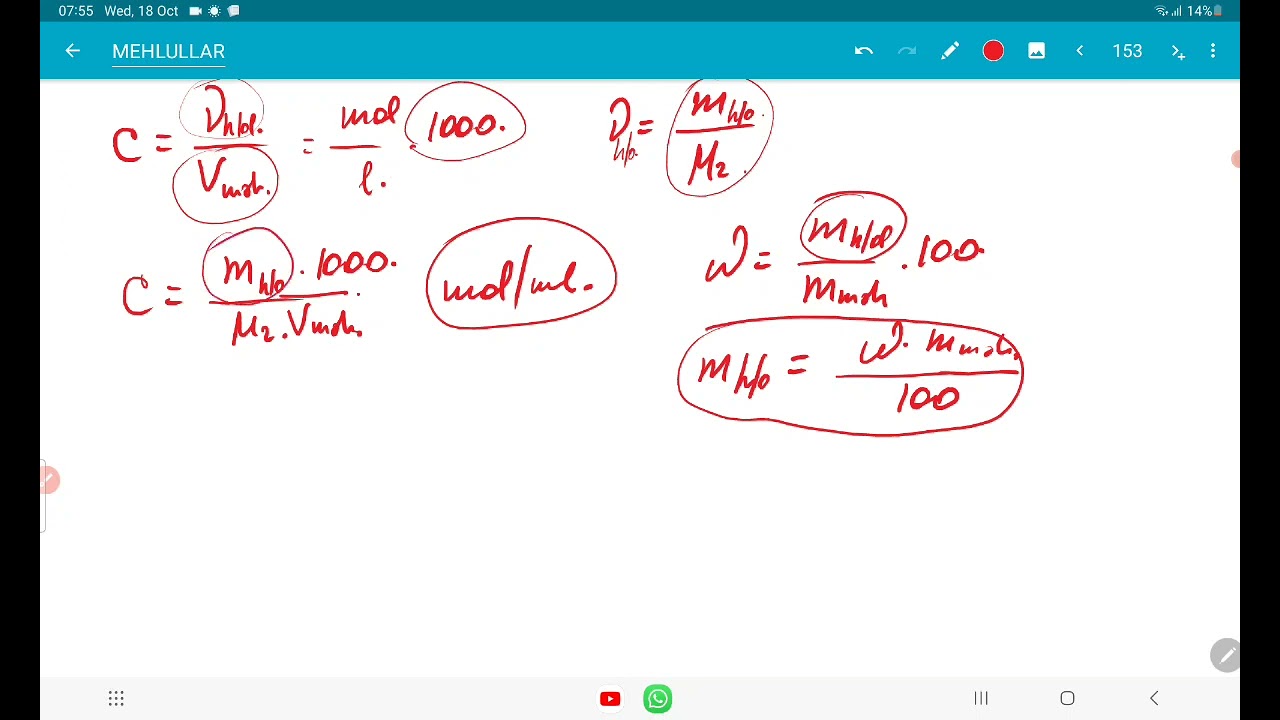 07:55 Wed, 18 Oct 14%
MEHLULLAR 153
C = νh/ol. / Vməh. = mol / l. · 1000.
νh/o = mh/o / M2.
C = mh/o · 1000. / M2 · Vməh. mol/ml.
ω = mh/ol / mməh · 100
mh/o = ω · mməh. / 100